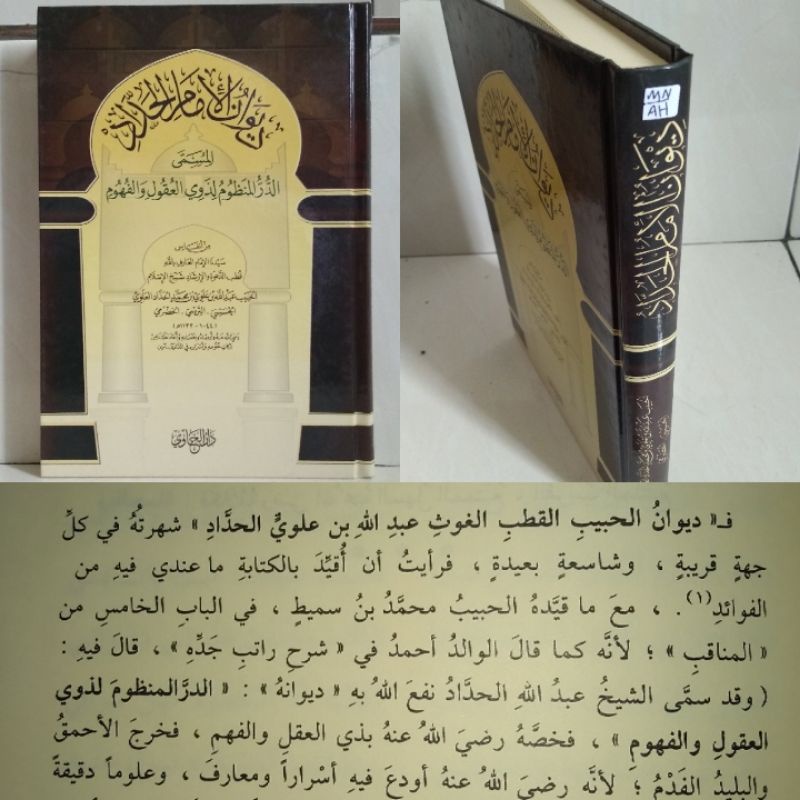 ديوان الإمام الحداد
المسمى
الدر المنظوم لذوي العقول والفهوم
سيدنا الإمام العارف بالله
قطب الدعوة والإرشاد شيخ الإسلام
الحبيب عبد الله بن علوي بن محمد الحداد العلوي
الحسيني التريمي الحضرمي
(١٠٤٤ - ١١٣٢ه)
MN
AH
ديوان الإمام الحداد
فـ« ديوانُ الحبيبِ القطبِ الغوثِ عبدِ اللهِ بن علويٍّ الحدَّادِ » شهرتُهُ في كلِّ
جهةٍ قريبةٍ ، وشاسعةٍ بعيدةٍ ، فرأيتُ أن أُقيِّدَ بالكتابةِ ما عندي فيهِ من
الفوائدِ(١). ، معَ ما قيَّدهُ الحبيبُ محمَّدُ بنُ سميطٍ ، في البابِ الخامسِ من
« المناقبِ » ؛ لأنَّه كما قالَ الوالدُ أحمدُ في « شرحِ راتبِ جَدِّهِ » ، قالَ فيهِ :
( وقد سمَّى الشيخُ عبدُ اللهِ الحدَّادُ نفعَ اللهُ بهِ « ديوانهُ » : « الدرَّ المنظومَ لذوي
العقولِ والفهومِ » ، فخصَّه رضيَ اللهُ عنهُ بذي العقلِ والفهمِ ، فخرجَ الأحمقُ
والبليدُ الفَدْمُ ؛ لأنَّه رضيَ اللهُ عنهُ أودعَ فيهِ أسْراراً ومعارفَ ، وعلوماً دقيقةً